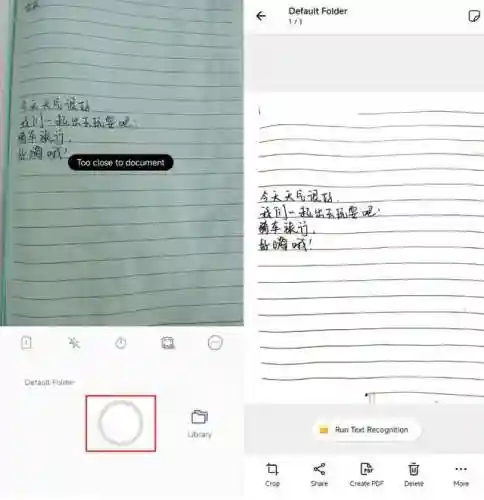 今天天气很好
我们一起出去玩耍吧!
骑车旅行,
好嗨哦!
Too close to document
Default Folder
Library
Default Folder
1 / 1
今天天气很好,
我们一起出去玩耍吧!
骑车旅行,
好嗨哦!
Run Text Recognition
Crop
Share
Create PDF
Delete
More